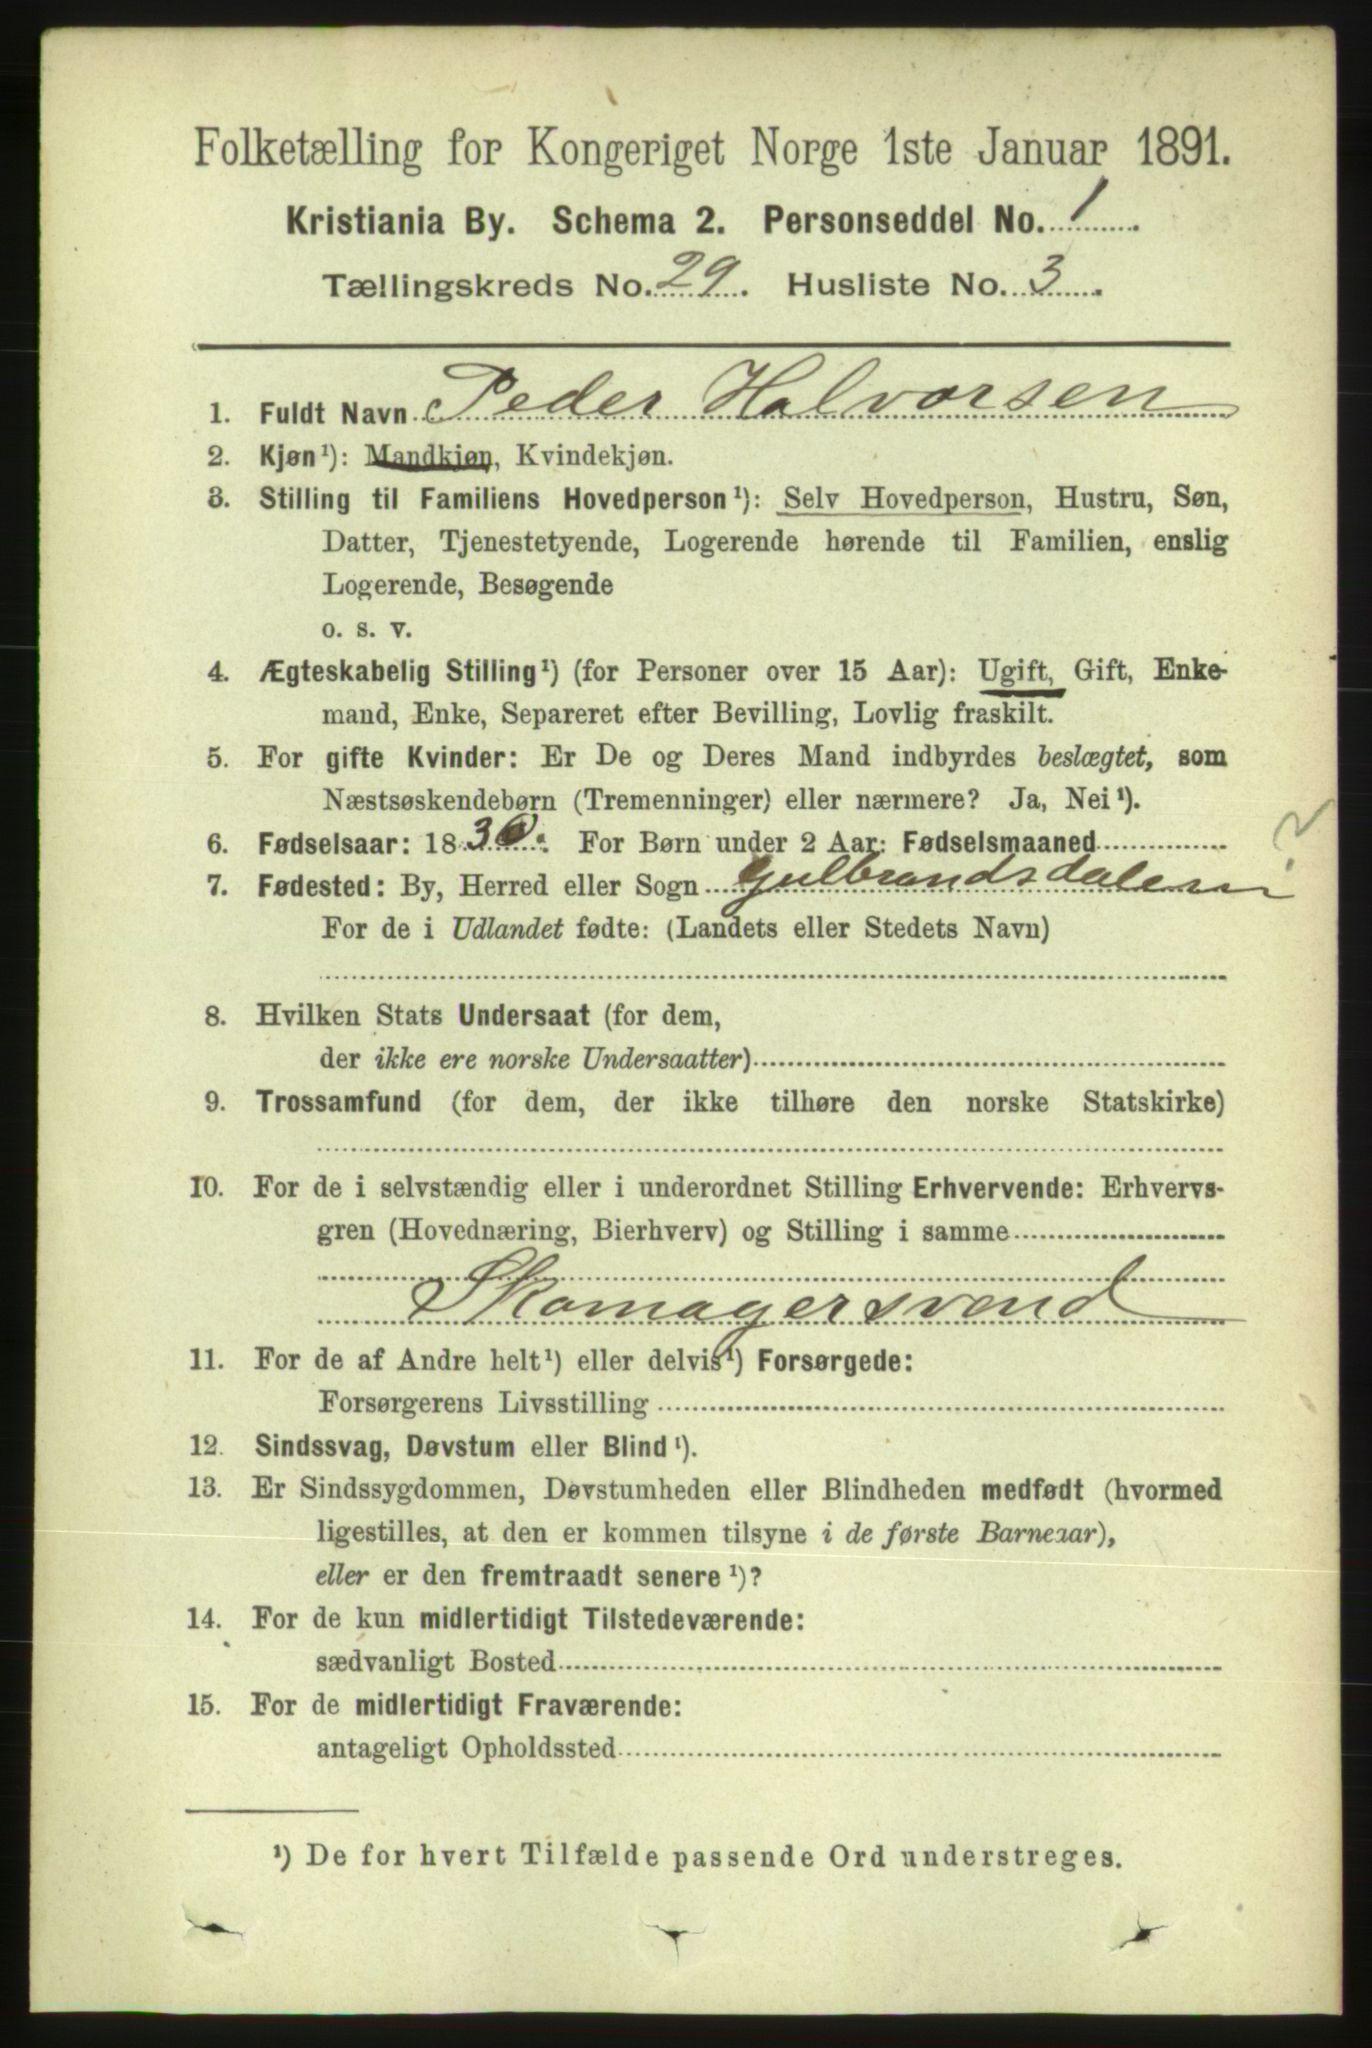 Folketælling for Kongeriget Norge 1ste Januar 1891.
Kristiania By. Schema 2. Personseddel No. 1
Tællingskreds No. 29. Husliste No. 3
1. Fuldt Navn Peder Halvorsen
2. Kjøn¹): Mandkjøn, Kvindekjøn.
3. Stilling til Familiens Hovedperson¹): Selv Hovedperson, Hustru, Søn,
Datter, Tjenestetyende, Logerende hørende til Familien, enslig
Logerende, Besøgende
o. s. v.
4. Ægteskabelig Stilling¹) (for Personer over 15 Aar): Ugift, Gift, Enke-
mand, Enke, Separeret efter Bevilling, Lovlig fraskilt.
5. For gifte Kvinder: Er De og Deres Mand indbyrdes beslægtet, som
Næstsøskendebørn (Tremenninger) eller nærmere? Ja, Nei¹).
6. Fødselsaar: 1830. For Børn under 2 Aar: Fødselsmaaned
7. Fødested: By, Herred eller Sogn Gulbrandsdalen ?
For de i Udlandet fødte: (Landets eller Stedets Navn)
8. Hvilken Stats Undersaat (for dem,
der ikke ere norske Undersaatter)
9. Trossamfund (for dem, der ikke tilhøre den norske Statskirke)
10. For de i selvstændig eller i underordnet Stilling Erhvervende: Erhvervs-
gren (Hovednæring, Bierhverv) og Stilling i samme
Skomagersvend
11. For de af Andre helt¹) eller delvis¹) Forsørgede:
Forsørgerens Livsstilling
12. Sindssvag, Døvstum eller Blind¹).
13. Er Sindssygdommen, Døvstumheden eller Blindheden medfødt (hvormed
ligestilles, at den er kommen tilsyne i de første Barneaar),
eller er den fremtraadt senere¹)?
14. For de kun midlertidigt Tilstedeværende:
sædvanligt Bosted
15. For de midlertidigt Fraværende:
antageligt Opholdssted
¹) De for hvert Tilfælde passende Ord understreges.